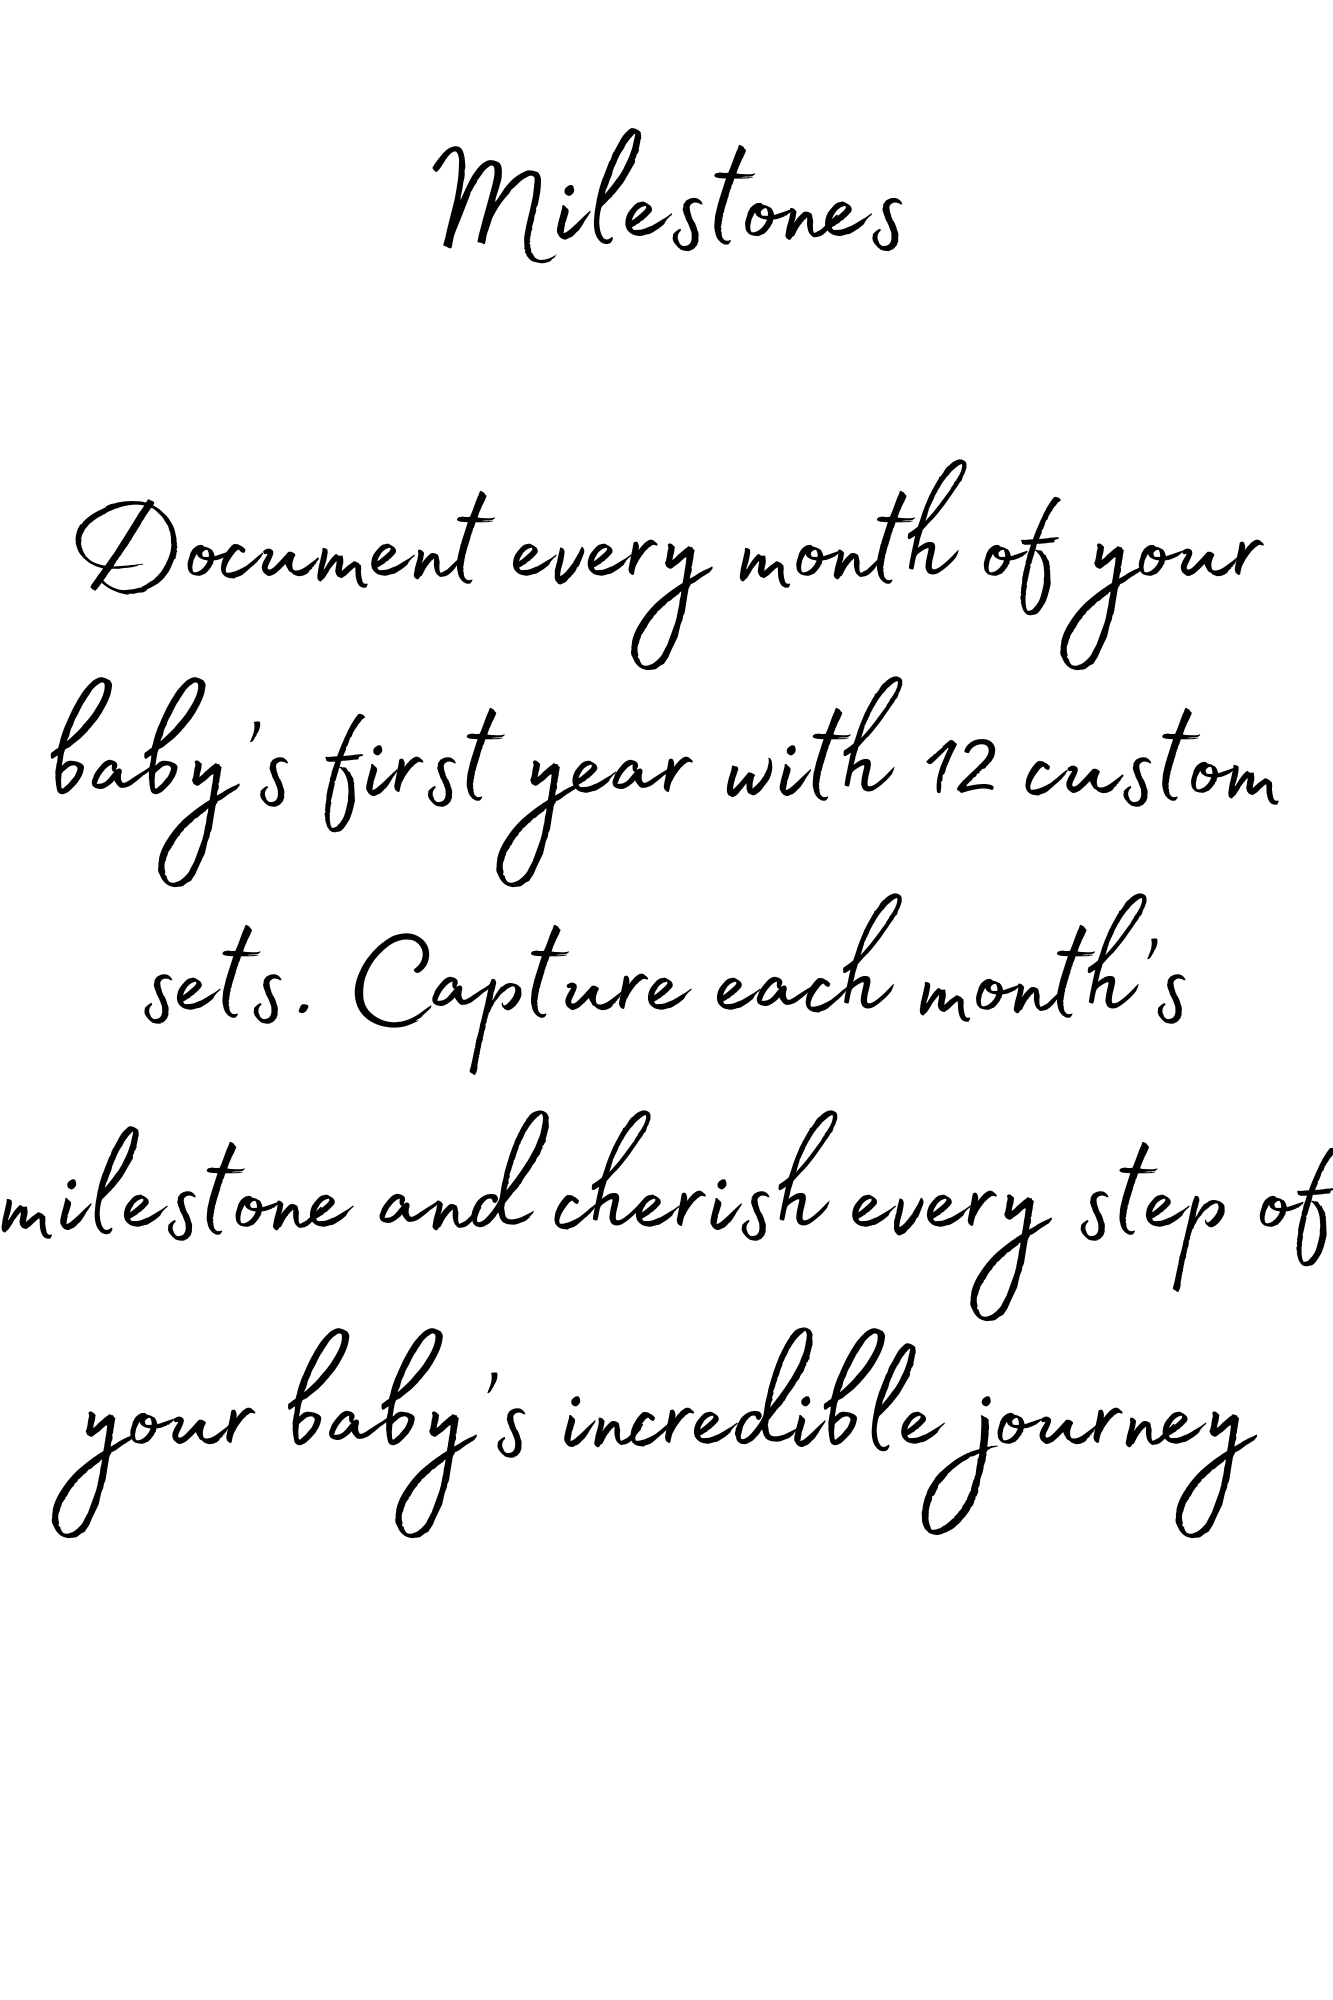 Milestones
Document every month of your
baby's first year with 12 custom
sets. Capture each month's
milestone and cherish every step of
your baby's incredible journey